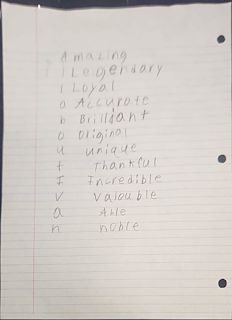 Amazing
l Legendary
l Loyal
a Accurate
b Brilliant
o Original
u unique
t Thankful
I Incredible
v Valouble
a Able
n noble